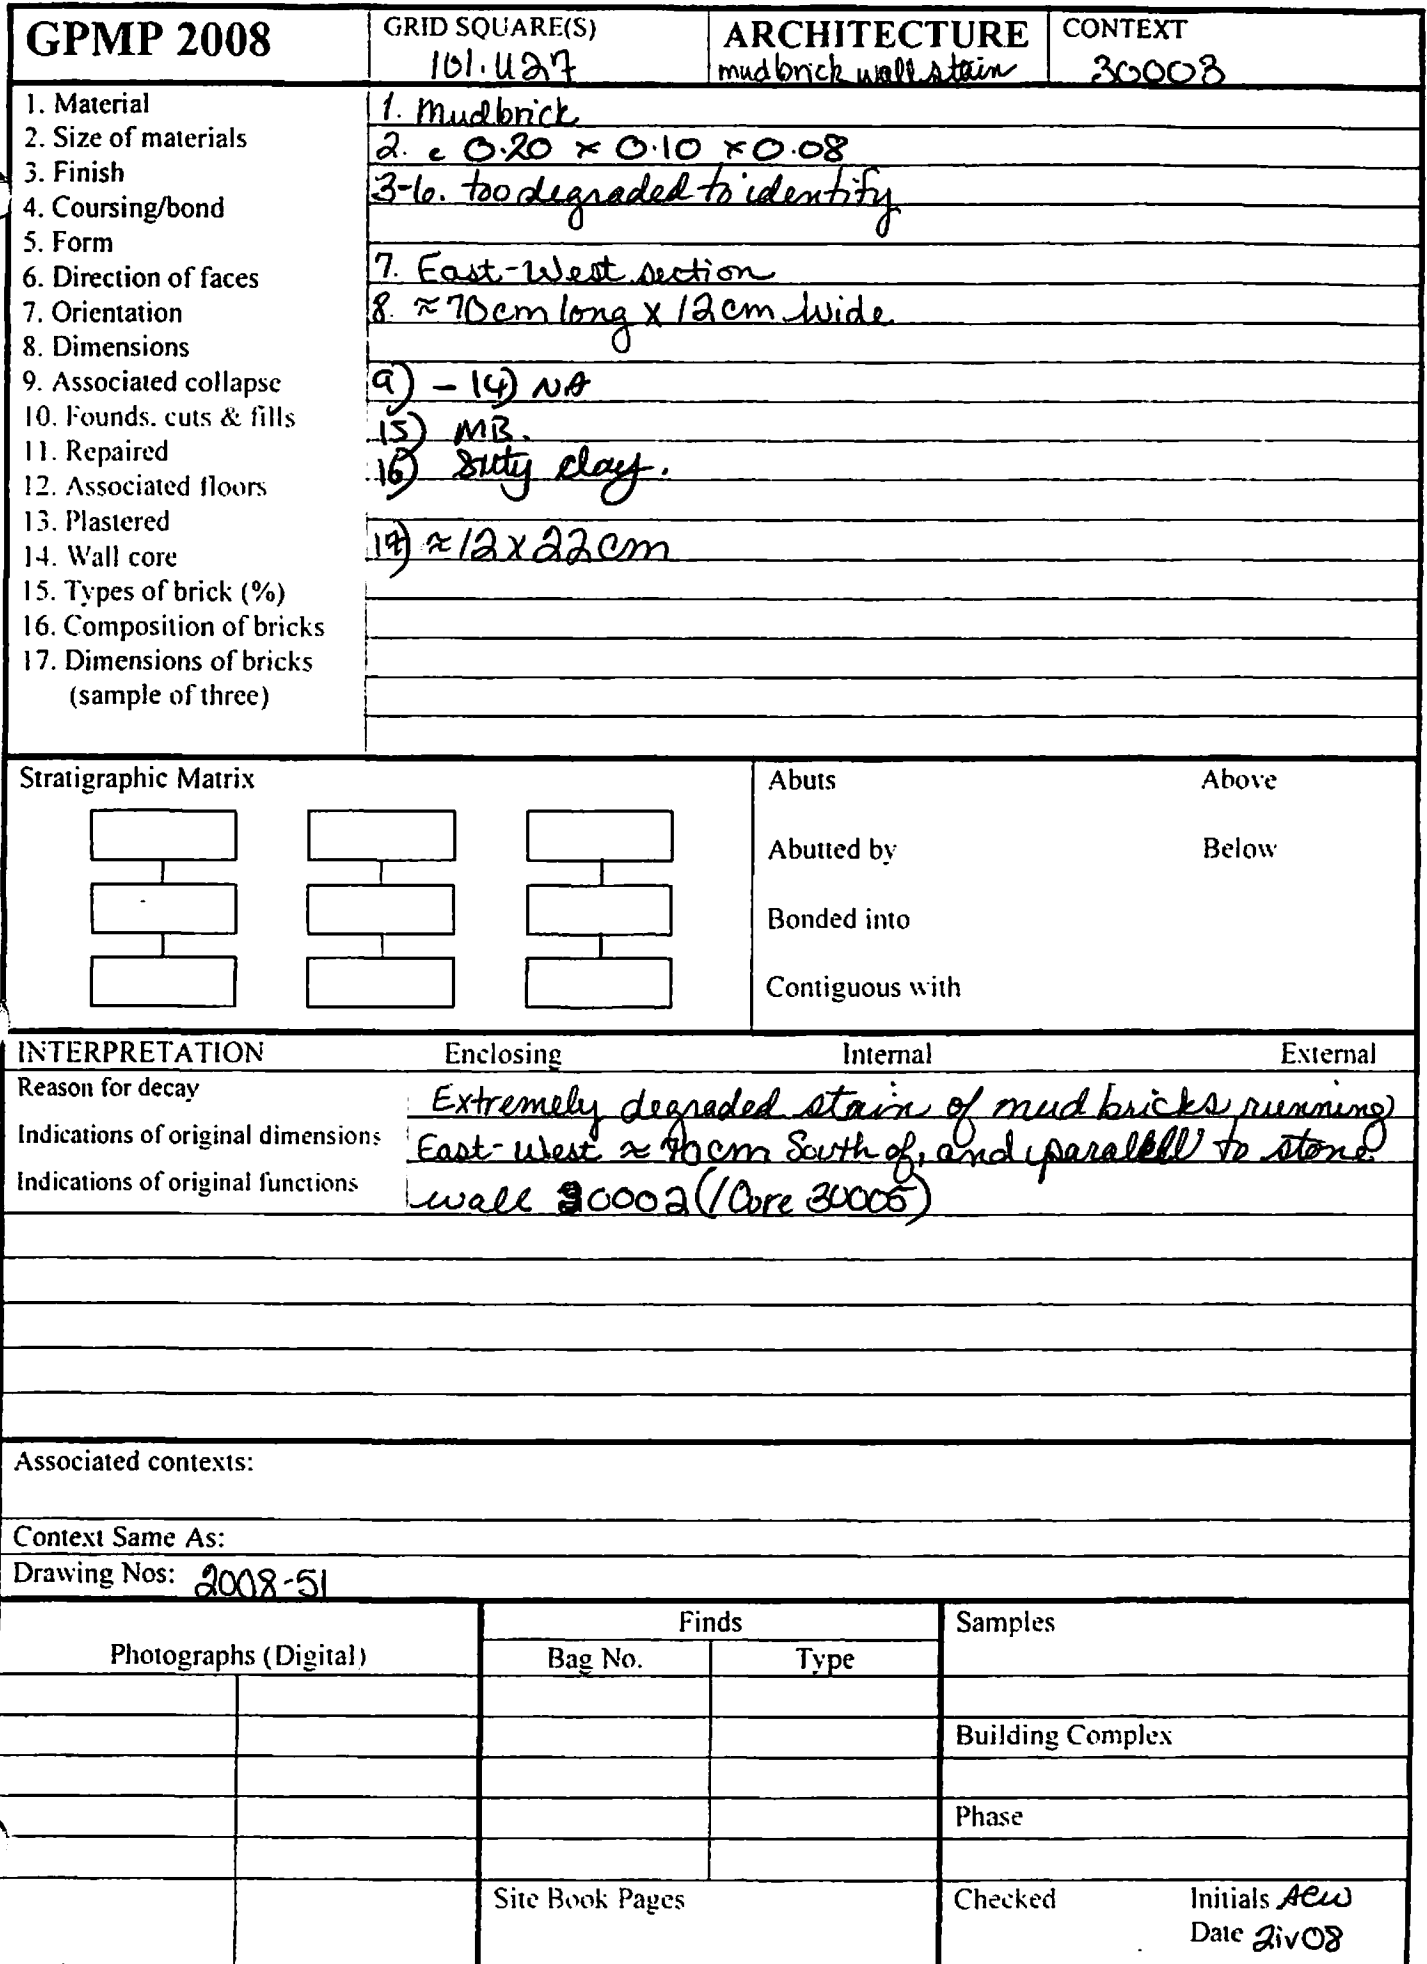 GPMP 2008
GRID SQUARE(S)
101.U27
ARCHITECTURE
mudbrick wall stain
CONTEXT
30003
1. Material
2. Size of materials
3. Finish
4. Coursing/bond
5. Form
6. Direction of faces
7. Orientation
8. Dimensions
9. Associated collapse
10. Founds. cuts & fills
11. Repaired
12. Associated floors
13. Plastered
14. Wall core
15. Types of brick (%)
16. Composition of bricks
17. Dimensions of bricks
(sample of three)
1. Mudbrick
2. c 0.20 x 0.10 x 0.08
3-6. too degraded to identify
7. East-West section
8. ≈70cm long x 12cm wide
9) - 14) NA
15) MB.
16) Silty clay.
17) ≈12x22cm
Stratigraphic Matrix
Abuts Above
Abutted by Below
Bonded into
Contiguous with
INTERPRETATION Enclosing Internal External
Reason for decay
Indications of original dimensions
Indications of original functions
Extremely degraded stain of mud bricks running
East-West ≈ 70cm South of, and parallell to stone
wall 30002 (/Core 30005)
Associated contexts:
Context Same As:
Drawing Nos: 2008-51
Photographs (Digital)
Finds
Bag No. Type
Samples
Building Complex
Phase
Site Book Pages
Checked Initials ACW
Date 2iv08